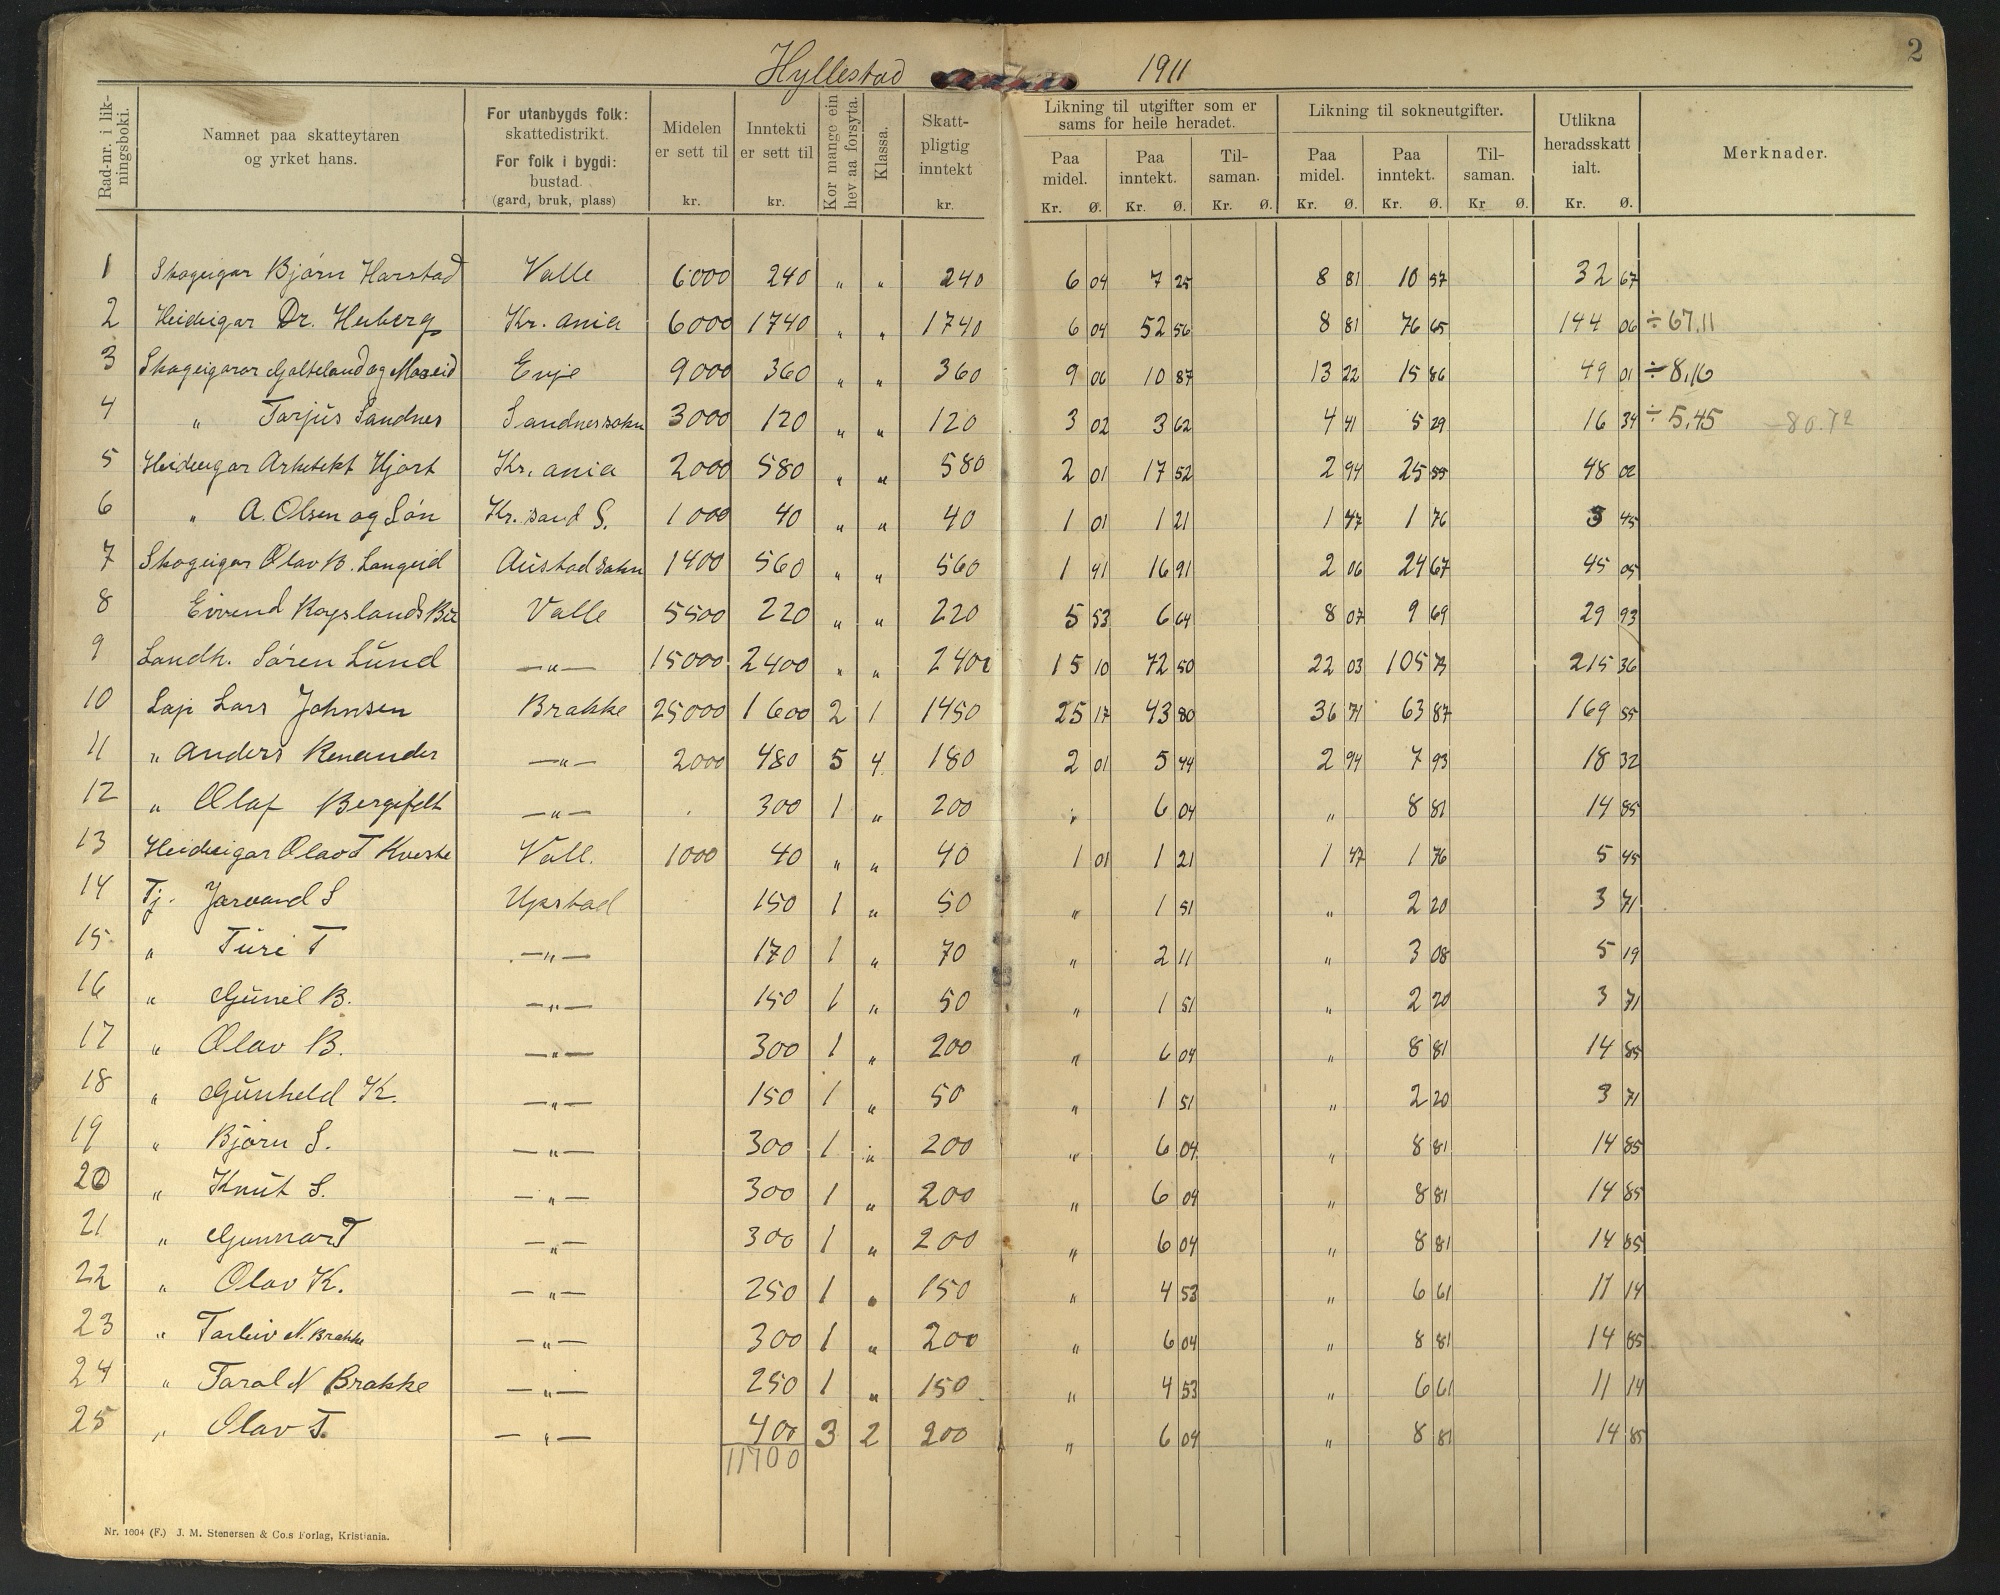 2
Hyllestad 1911
Rad-nr. i lik-
ningsboki.
Namnet paa skatteytaren
og yrket hans.
For utanbygds folk:
skattedistrikt.
For folk i bygdi:
bustad.
(gard, bruk, plass)
Midelen
er sett til
kr.
Inntekti
er sett til
kr.
Kor mange ein
hev aa forsyta.
Klassa.
Skatt-
pligtig
inntekt
kr.
Likning til utgifter som er
sams for heile heradet.
Paa
midel.
Kr. Ø.
Paa
inntekt.
Kr. Ø.
Til-
saman.
Kr. Ø.
Likning til sokneutgifter.
Paa
midel.
Kr. Ø.
Paa
inntekt.
Kr. Ø.
Til-
saman.
Kr Ø.
Utlikna
heradsskatt
ialt.
Kr. Ø.
Merknader.
1 Skogeigar Bjørn Harstad Valle 6000 240 " " 240 6 04 7 25 8 81 10 57 32 67
2 Heideigar Dr. Heiberg Kr. ania 6000 1740 " " 1740 6 04 52 56 8 81 76 65 144 06 ÷ 67.11
3 Skogeigarar Galteland og Moseid Evje 9000 360 " " 360 9 06 10 87 13 22 15 86 49 01 ÷ 8.16
4 " Tarjus Sandnes Sandnessokn 3000 120 " " 120 3 02 3 62 4 41 5 29 16 34 ÷ 5.45 -80.72
5 Heideigar Arkitekt Hjort Kr. ania 2000 580 " " 580 2 01 17 52 2 94 25 55 48 02
6 " A. Olsen og Søn Kr. sand S. 1000 40 " " 40 1 01 1 21 1 47 1 76 5 45
7 Skogeigar Olav B. Langeid Austad sokn 1400 560 " " 560 1 41 16 91 2 06 24 67 45 05
8 Eivend Rogslands Bu Valle 5500 220 " " 220 5 53 6 64 8 07 9 69 29 93
9 Landh. Søren Lund — " — 15000 2400 " " 2400 15 10 72 50 22 03 105 73 215 36
10 Lap Lars Johnsen Brokke 25000 1600 2 1 1450 25 17 43 80 36 71 63 87 169 55
11 " Anders Renander — " — 2000 480 5 4 180 2 01 5 44 2 94 7 93 18 32
12 " Olaf Bergefelt — " — 300 1 " 200 " 6 04 " 8 81 14 85
13 Heideigar Olav T Kveste Vall. 1000 40 " " 40 1 01 1 21 1 47 1 76 5 45
14 Tj. Jorand S Upstad 150 1 " 50 " 1 51 " 2 20 3 71
15 " Turi T — " — 170 1 " 70 " 2 11 " 3 08 5 19
16 " Gunil B. — " — 150 1 " 50 " 1 51 " 2 20 3 71
17 " Olav B. — " — 300 1 " 200 " 6 04 " 8 81 14 85
18 " Gunheld K. — " — 150 1 " 50 " 1 51 " 2 20 3 71
19 " Bjørn S. — " — 300 1 " 200 " 6 04 " 8 81 14 85
20 " Knut S. — " — 300 1 " 200 " 6 04 " 8 81 14 85
21 " Gunnar T — " — 300 1 " 200 " 6 04 " 8 81 14 85
22 " Olav K. — " — 250 1 " 150 " 4 53 " 6 61 11 14
23 " Tarleiv N. Brokke — " — 300 1 " 200 " 6 04 " 8 81 14 85
24 " Taral N Brokke — " — 250 1 " 150 " 4 53 " 6 61 11 14
25 " Olav T. — " — 400 3 2 200 " 6 04 " 8 81 14 85
11700
Nr. 1604 (F.) J. M. Stenersen & Co.s Forlag, Kristiania.